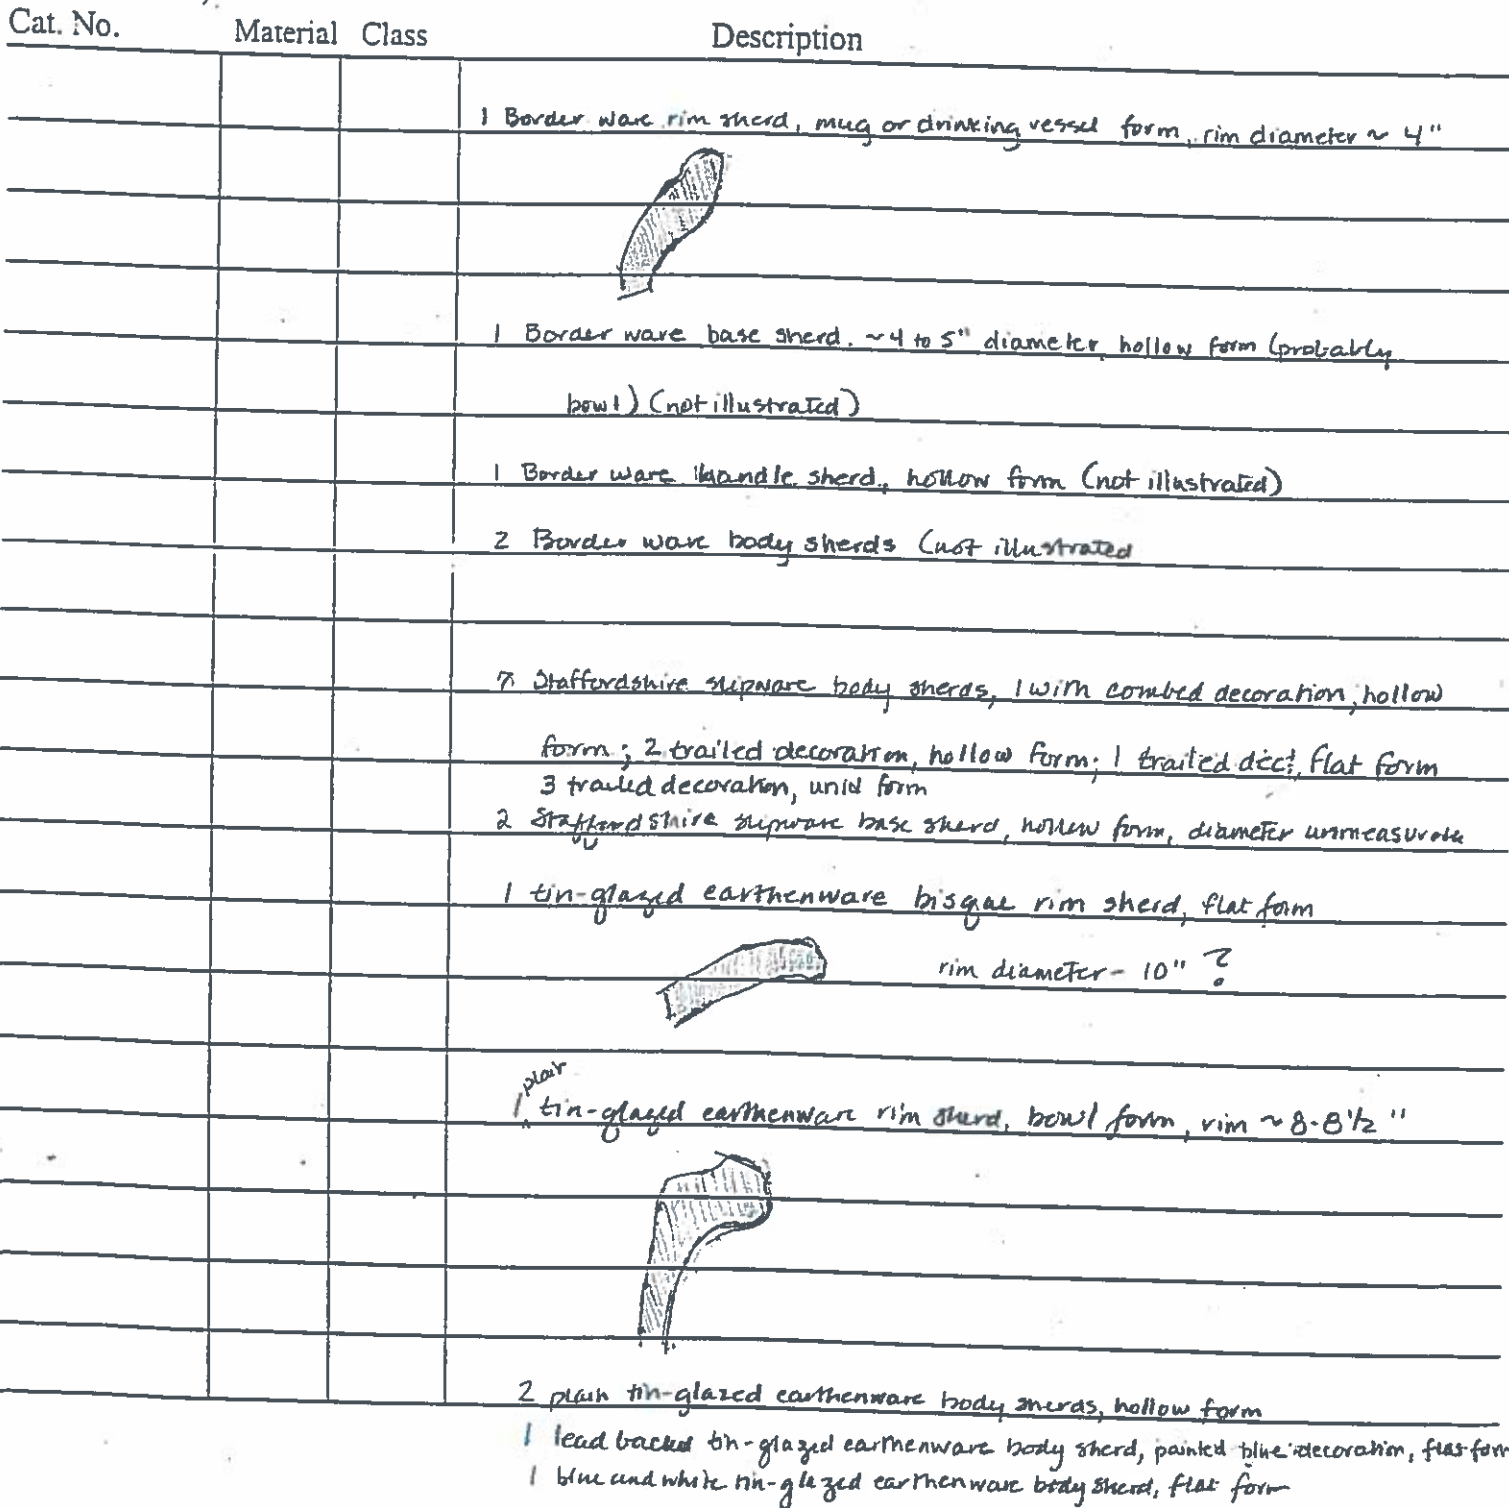 Cat. No. Material Class Description
1 Border ware rim sherd, mug or drinking vessel form, rim diameter ~ 4"
1 Border ware base sherd. ~4 to 5" diameter hollow form (probably
bowl) (not illustrated)
1 Border ware handle sherd, hollow form (not illustrated)
2 Border ware body sherds (not illustrated
7 Staffordshire slipware body sherds, 1 with combed decoration, hollow
form; 2 trailed decoration, hollow form; 1 trailed dec!, flat form
3 trailed decoration, unid form
2 Staffordshire slipware base sherd, hollow form, diameter
1 tin-glazed earthenware bisque rim sherd, flat form
rim diameter - 10" ?
plain
1 tin-glazed earthenware rim sherd, bowl form, rim ~ 8-8 1/2 "
2 plain tin-glazed earthenware body sherds, hollow form
1 lead backed tin-glazed earthenware body sherd, painted blue decoration, flat form
1 blue and white tin-glazed earthenware body sherd, flat form